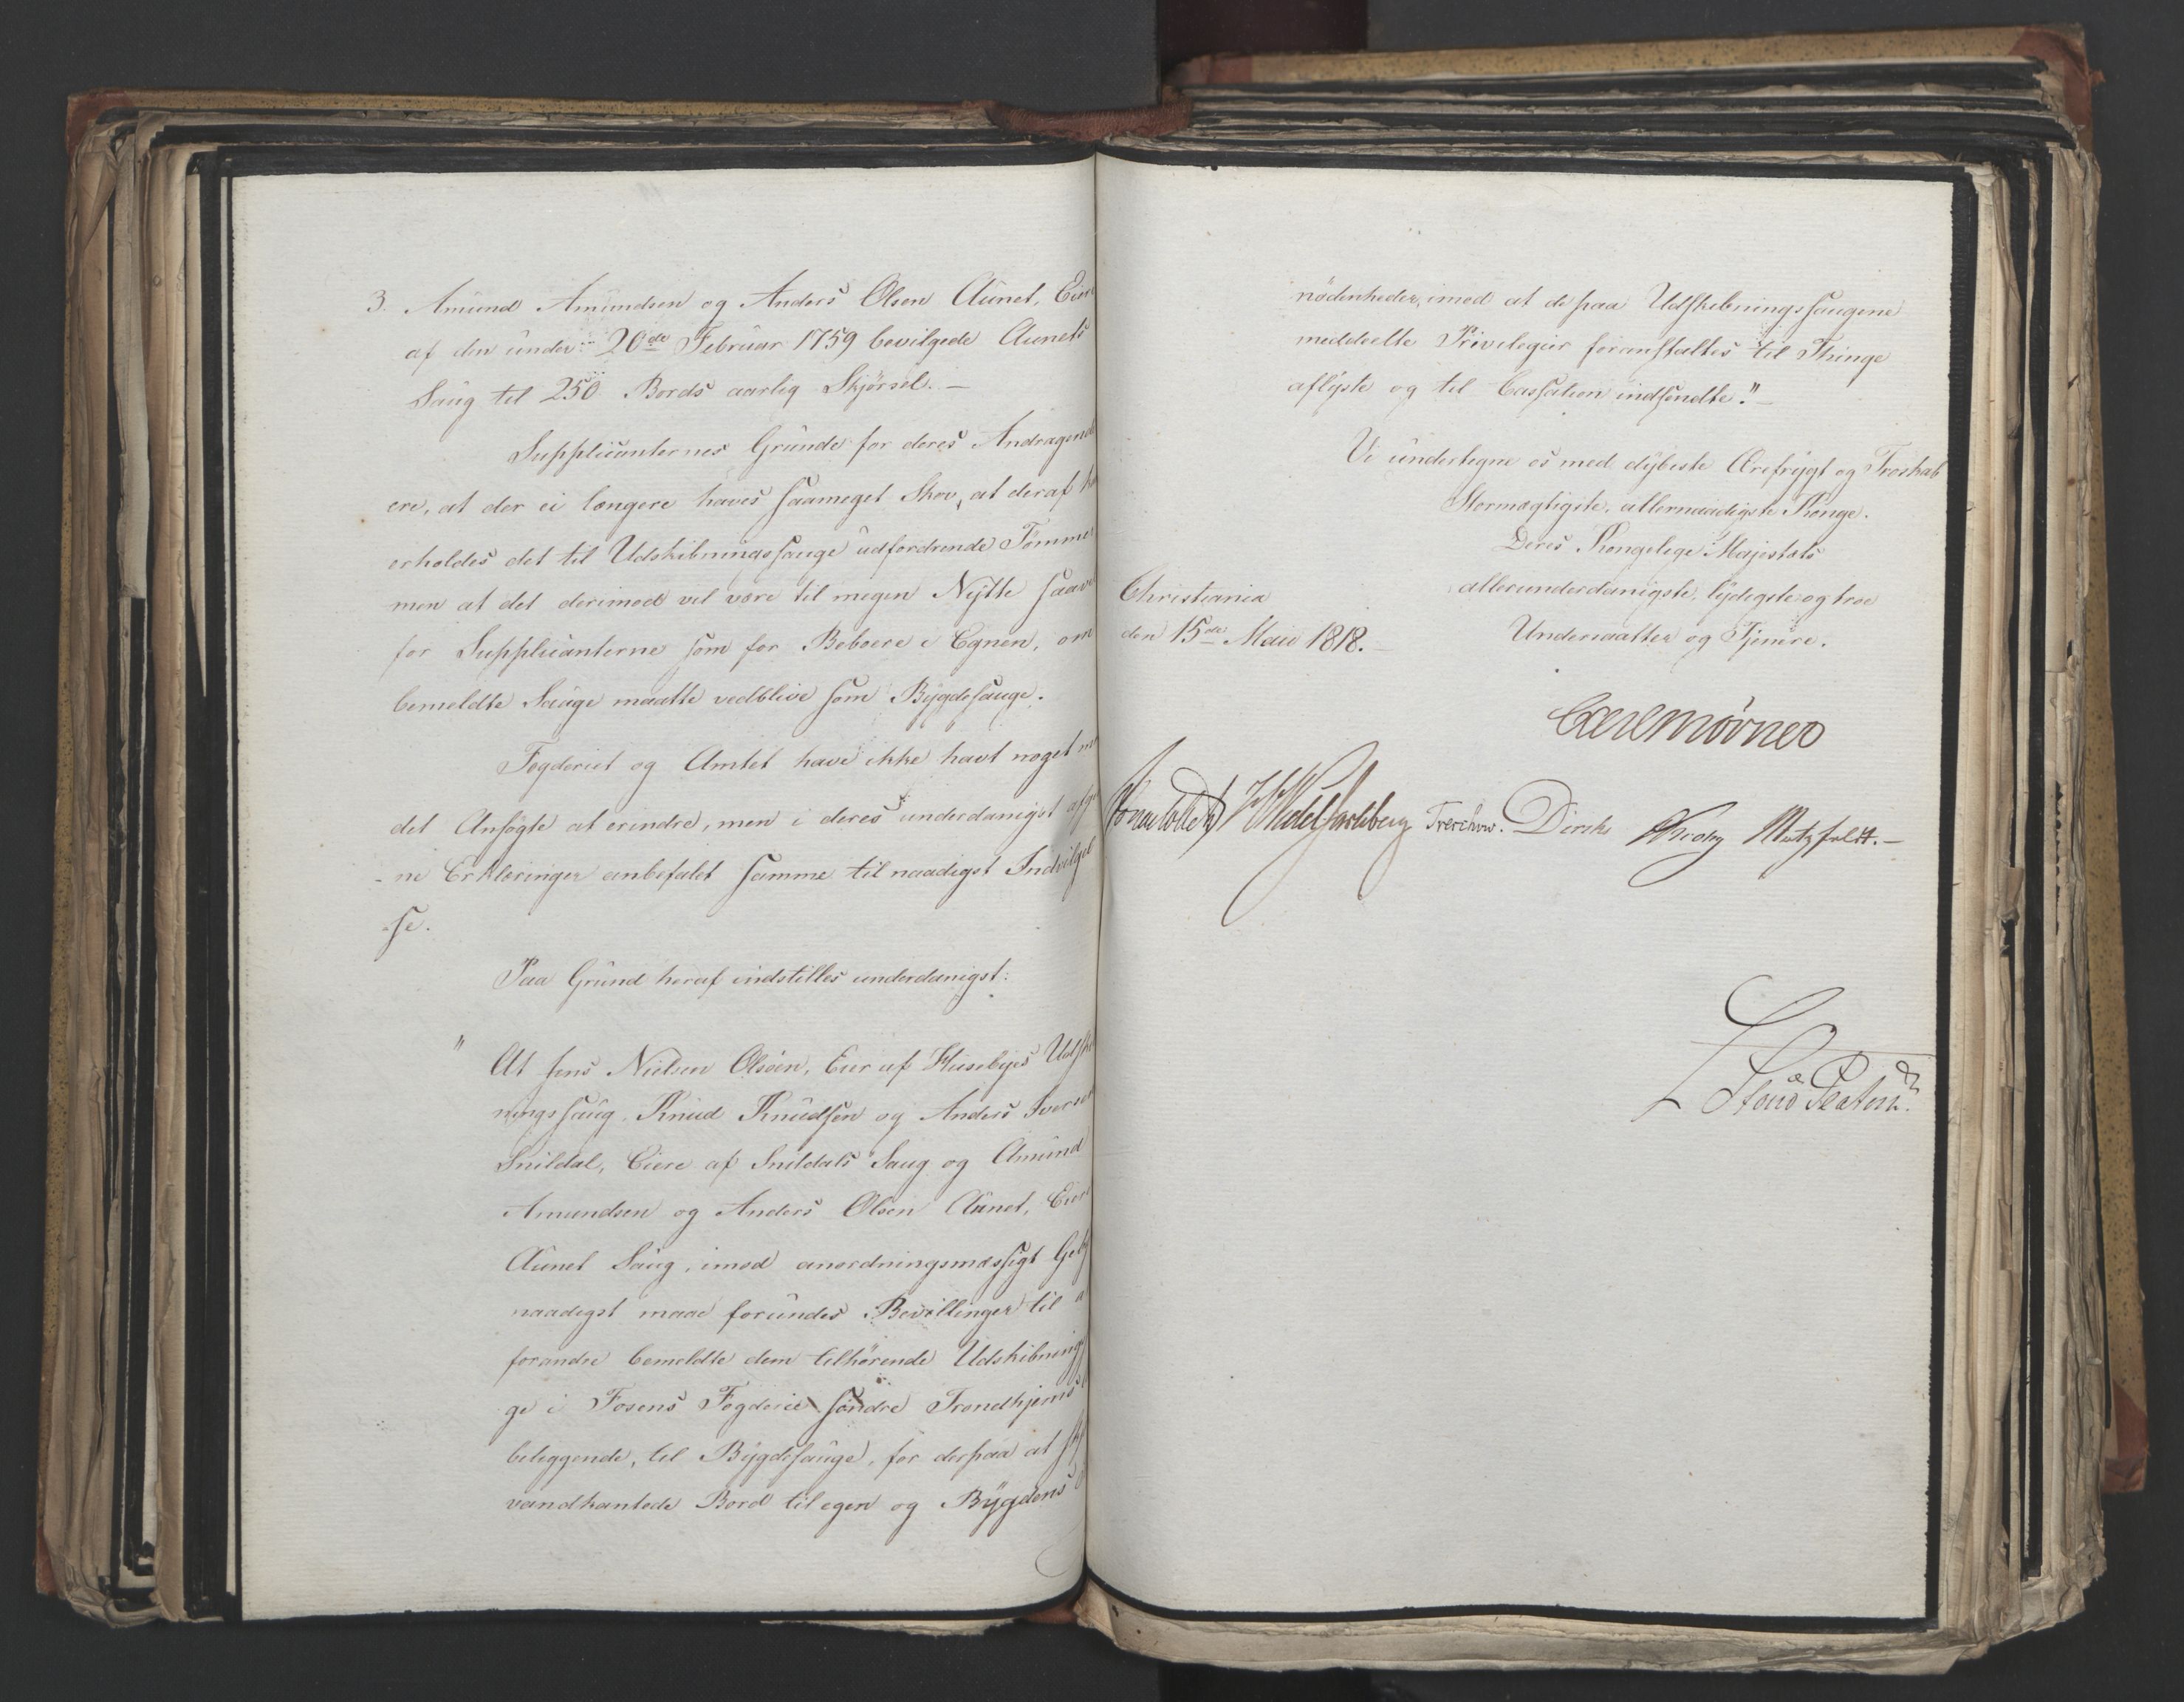 3. Amund Amundsen og Anders Olsen Aunet, Eiere
af den under 20de Februar 1759 bevilgede Aunets
Saug til 250 Bords aarlig Skjørsel. —
Supplicanternes Grunde for deres Andragende
ere, at der ei længere haves saameget Skov, at deraf
erholdes det til Udskibningssauge udfordrende Tømmer
men at det derimod vil være til megen Nytte saavel
for Supplicanterne som for Beboere i Egnen, om
bemeldte Sauge maatte vedblive som Bygdesauge.
Fogderiet og Amtet have ikke havt noget
det Ansøgte at erindre, men i deres underdanigst afgiv
-ne Erklæringer anbefalet samme til naadigst Indvilgel
-se.
Paa Grund heraf indstilles underdanigst:
" At Jens Nielsen Olsøen, Eier af Husebyes Udski
nings saug. Knud Knudsen og Anders Iversen
Snildal, Eiere af Snildals Saug og Amund
Amundsen og Anders Olsen Aunet, Eiere
Aunet Saug, imod anordningsmæssigt Geb
naadigst maae forundes Bevillinger til a
forandre bemeldte dem tilhørende Udskibnings
ge i Fosens Fogderie søndre Trondhjems
beliggende, til Bygdesauge, for derpaa at
vandkantede Bord til egen og Bygdens
nødenheder, imod at de paa Udskibningssaugene
meddeelte Privilegier foranstaltes til Thinge
aflyste og til Cassation indsendte." —
Vi undertegne os med dybeste Ærefrygt og Troskab
Stormægtigste, allernaadigste Konge.
Deres Kongelige Majestæts
Christiania
den 15de Maii 1818. —
allerunderdanigste, lydigste og troe
Undersaatter og Tjenere.
Carl Mörner
Sommerhielm HWedel Jarlsberg Treschow. Diriks Krohg Motzfeldt. —